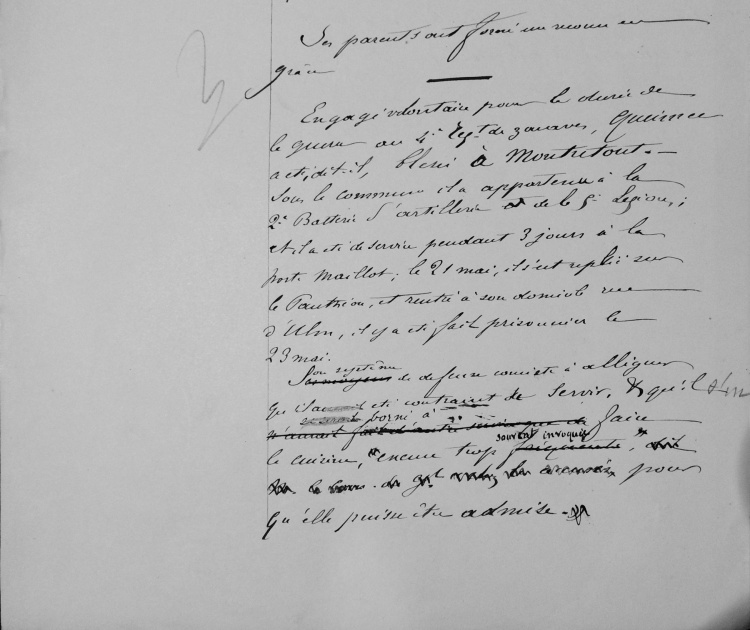 Ses parents ont formé un recours en
grâce
Engagé volontaire pour la durée de
la guerre au 4e Regt de zouaves, Queimee
a été, dit-il, blessé à Montretout. —
Sous la commune il a appartenu à la
2e Batterie d'artillerie de la 5e Legion,;
et il a été de service pendant 3 jours à la
porte Maillot; le 21 mai, il s'est replié sur
le Panthéon, et rentré à son domicile rue
d'Ulm, il y a été fait prisonnier le
23 mai.
Son système
de défense consiste à alléguer
qu'il a été contraint de servir, & qu'il s'est
borné à
n'aurait fait d'autre service que de faire
souvent invoquée
la cuisine, excuse trop fréquente
pour
qu'elle puisse être admise. —